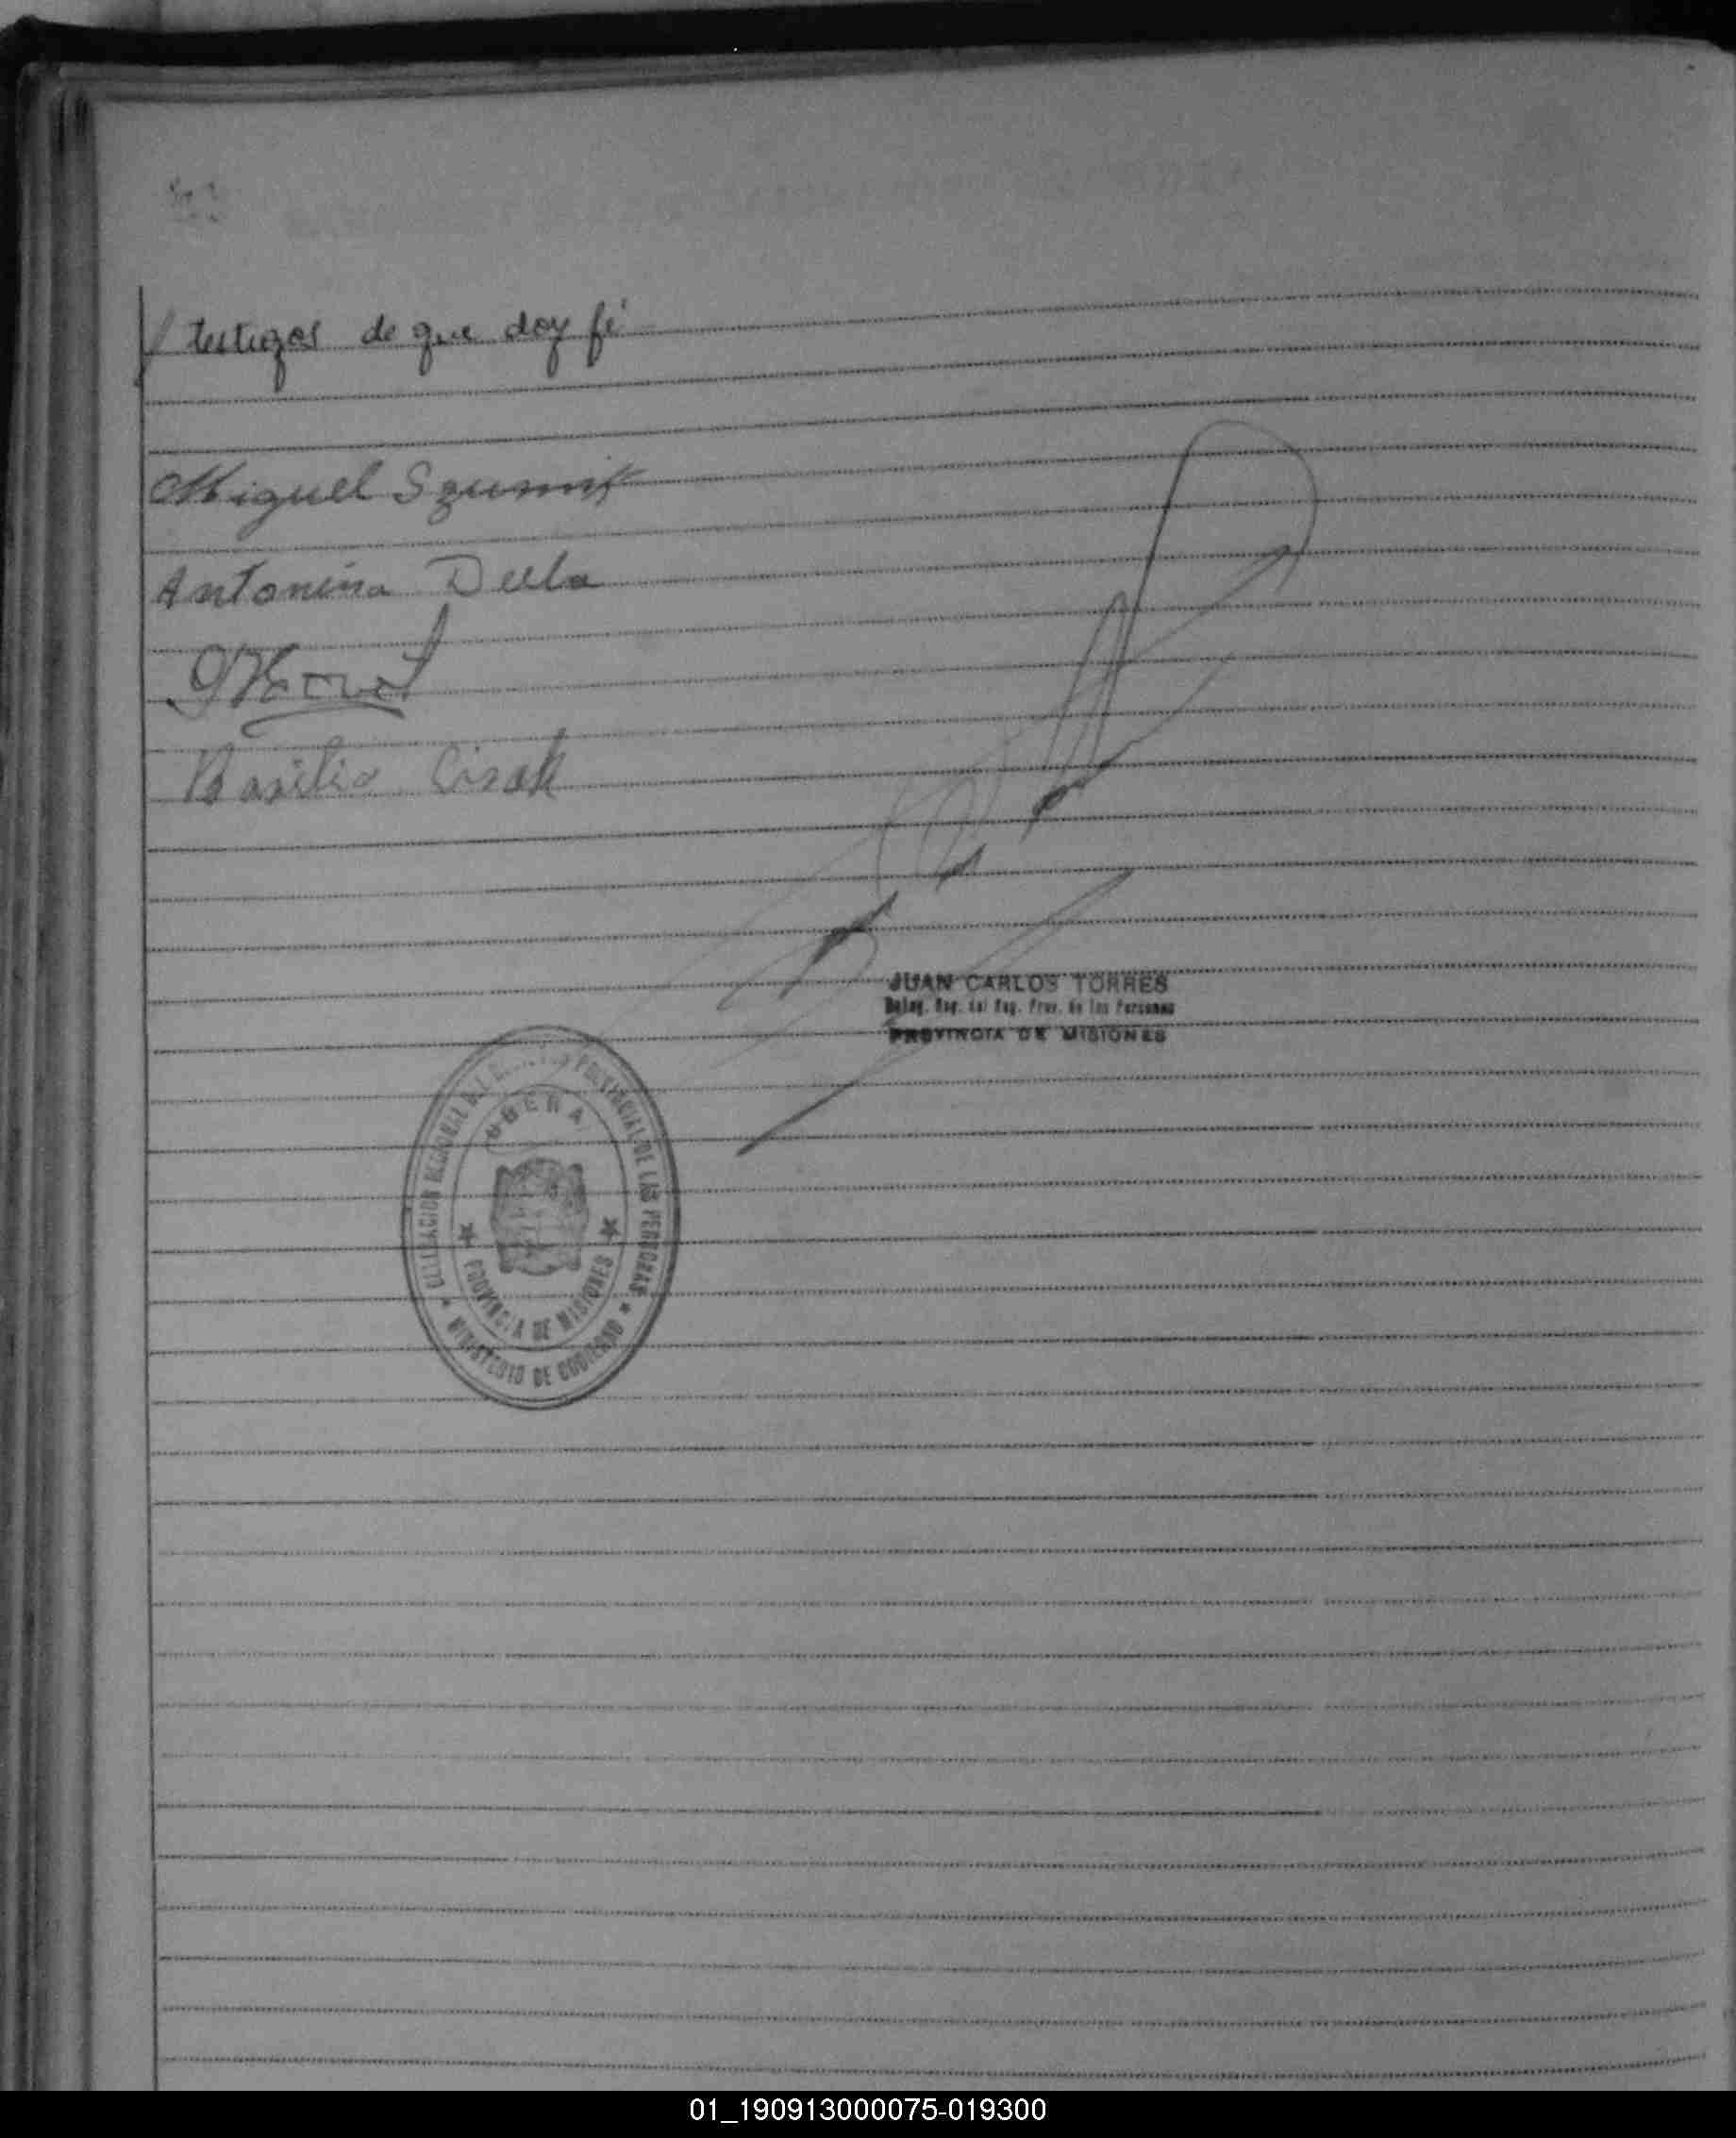 / testigos de que doy fé
Miguel Szumik
Antonina Dula
Basilio Cisak
JUAN CARLOS TORRES
Deleg. Reg. del Reg. Prov. de las Personas
PROVINCIA DE MISIONES
DELEGACION REGIONAL DEL PROVINCIAL DE LAS PERSONAS
OBERA
PROVINCIA DE MISIONES
MINISTERIO DE GOBIERNO
01_190913000075-019300